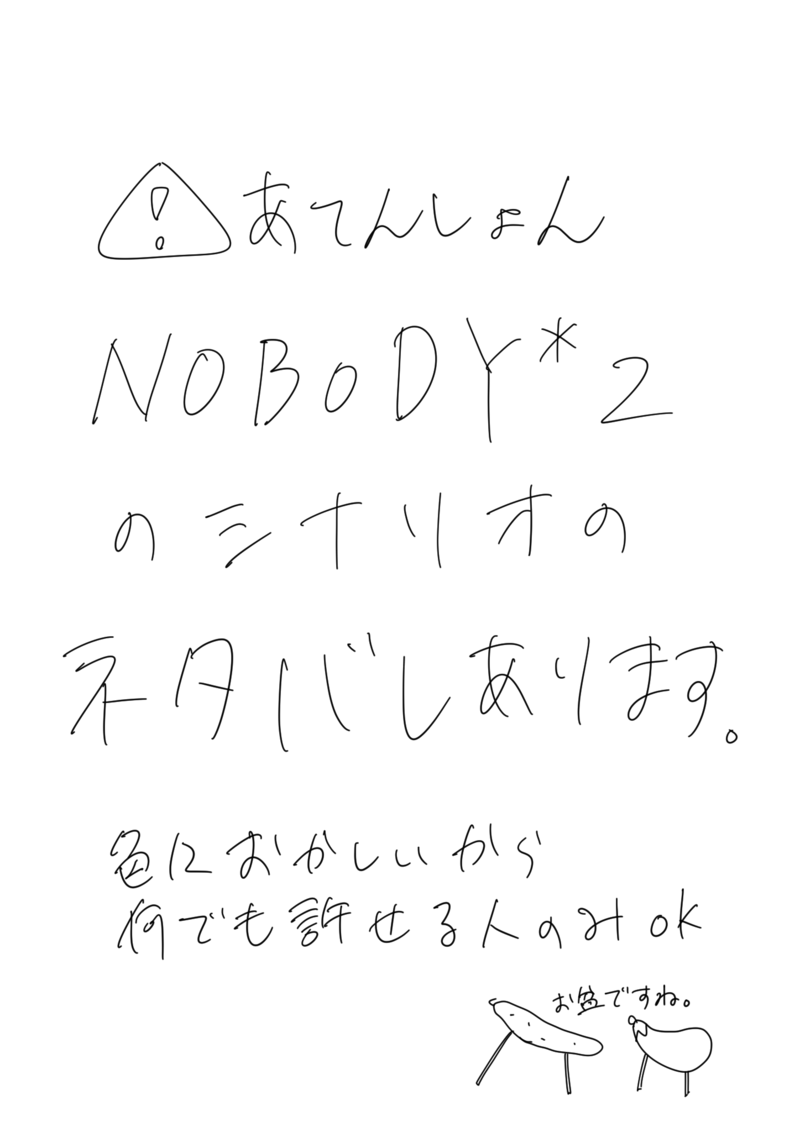 あてんしょん
NOBODY*2
のシナリオの
ネタバレあります。
色におかしいから
何でも許せる人のみOK
お盆ですね。